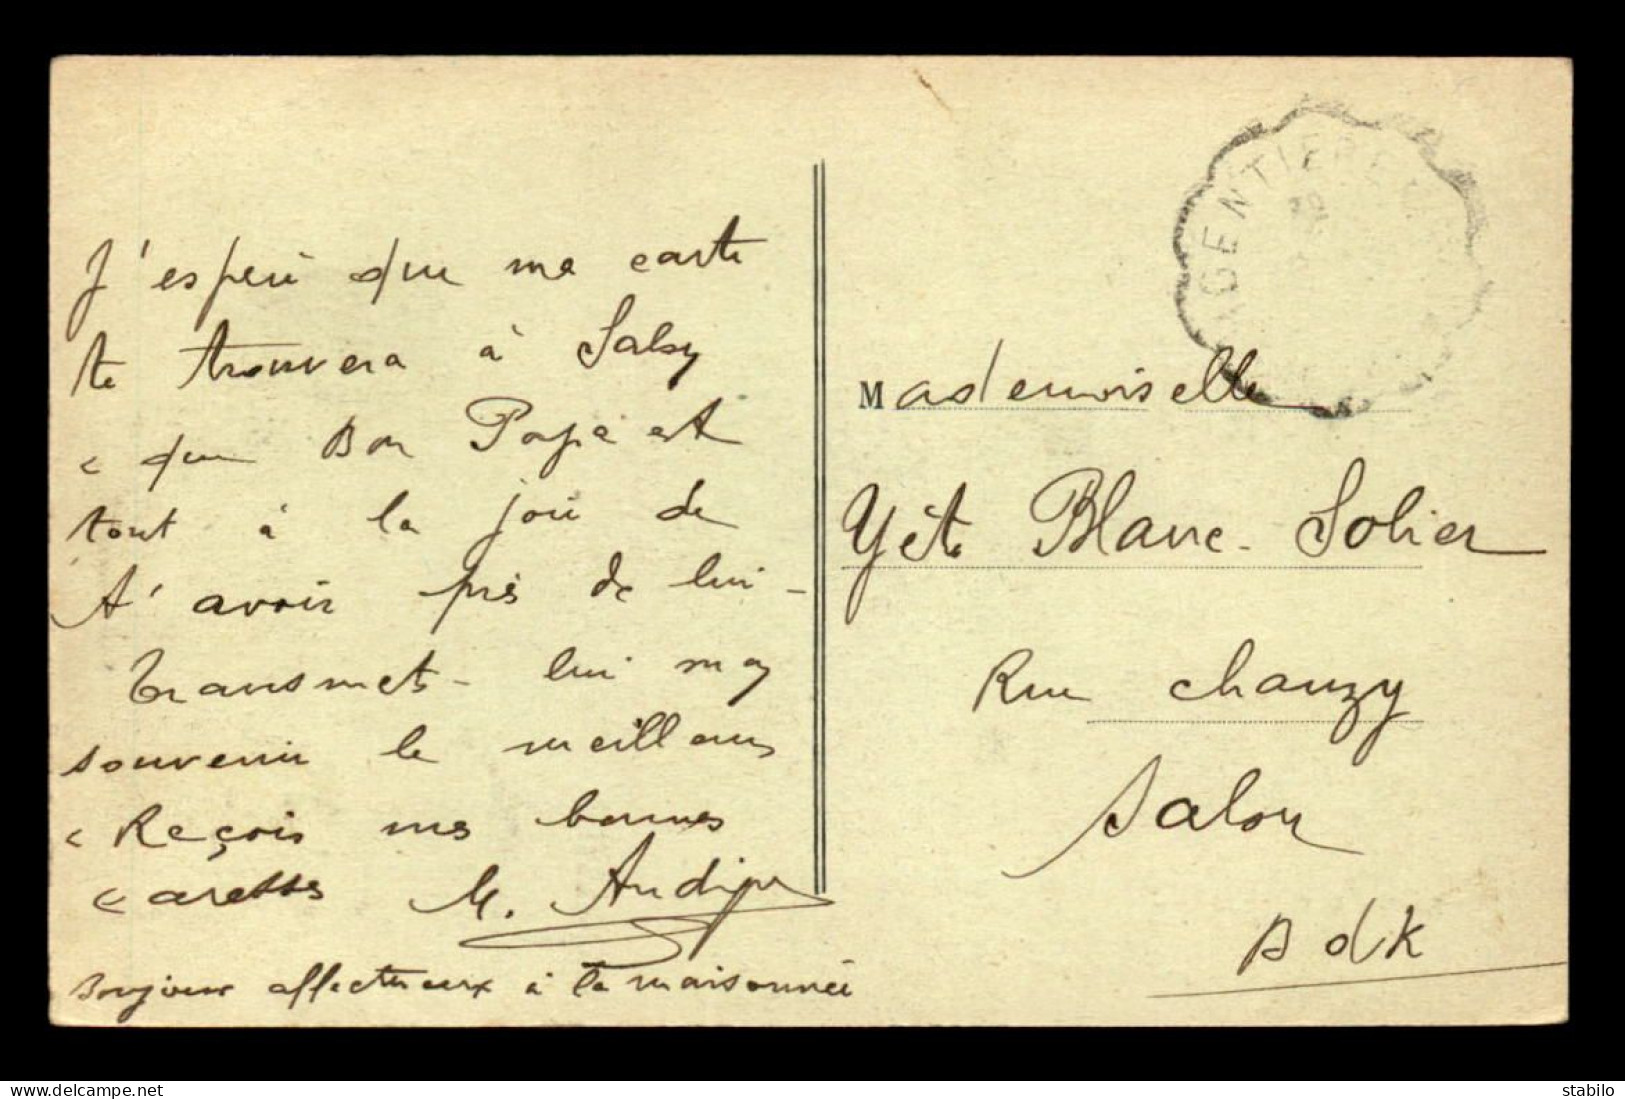 J'espère que ma carte
te trouvera à Salsy
& que Bon Papa est
tout à la joie de
t'avoir près de lui -
Transmets-lui mes
souvenirs les meilleurs
& Reçois mes bonnes
caresses M. Audi
Bonjour affectueux à la maisonnée
ARGENTIERE
Mademoiselle
Yéte Blanc-Solier
Rue Chanzy
Salon
B d R
03/04/2024
stabilo